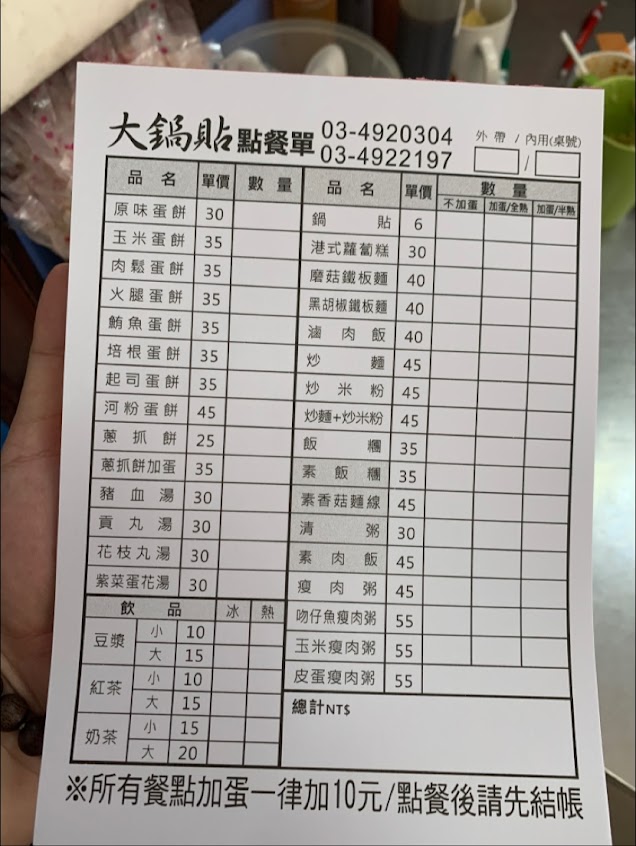 大鍋貼點餐單 03-4920304
03-4922197
外帶 / 內用(桌號)
/
品名 單價 數量
原味蛋餅 30
玉米蛋餅 35
肉鬆蛋餅 35
火腿蛋餅 35
鮪魚蛋餅 35
培根蛋餅 35
起司蛋餅 35
河粉蛋餅 45
蔥抓餅 25
蔥抓餅加蛋 35
豬血湯 30
貢丸湯 30
花枝丸湯 30
紫菜蛋花湯 30
飲品 冰 熱
豆漿 小 10
大 15
紅茶 小 10
大 15
奶茶 小 15
大 20
品名 單價 數量
不加蛋 加蛋/全熟 加蛋/半熟
鍋貼 6
港式蘿蔔糕 30
磨菇鐵板麵 40
黑胡椒鐵板麵 40
滷肉飯 40
炒麵 45
炒米粉 45
炒麵+炒米粉 45
飯糰 35
素飯糰 35
素香菇麵線 45
清粥 30
素肉飯 45
瘦肉粥 45
吻仔魚瘦肉粥 55
玉米瘦肉粥 55
皮蛋瘦肉粥 55
總計NT$
※所有餐點加蛋一律加10元/點餐後請先結帳